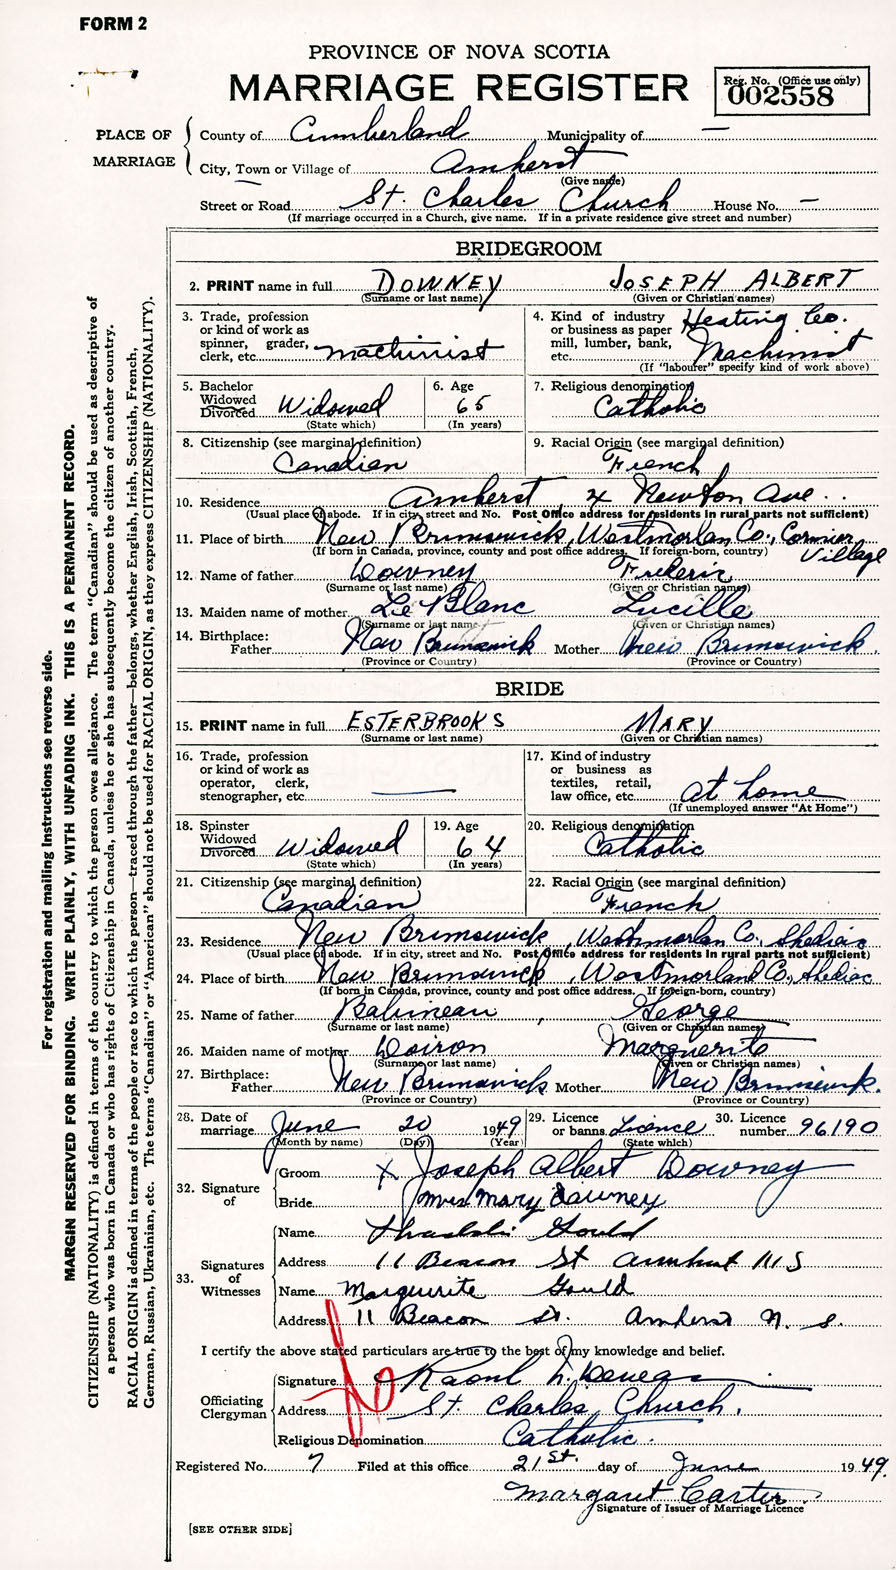 FORM 2
PROVINCE OF NOVA SCOTIA
MARRIAGE REGISTER
Reg. No. (Office use only)
002558
PLACE OF MARRIAGE
County of Cumberland Municipality of —
City, Town or Village of Amherst
(Give name)
Street or Road St. Charles Church House No. —
(If marriage occurred in a Church, give name. If in a private residence give street and number)
BRIDEGROOM
2. PRINT name in full DOWNEY JOSEPH ALBERT
(Surname or last name) (Given or Christian names)
3. Trade, profession or kind of work as spinner, grader, clerk, etc. machinist
4. Kind of industry or business as paper mill, lumber, bank, etc. Heating Co. Machinist
(If "labourer" specify kind of work above)
5. Bachelor Widowed Divorced Widowed
(State which)
6. Age 65
(In years)
7. Religious denomination Catholic
8. Citizenship (see marginal definition) Canadian
9. Racial Origin (see marginal definition) French
10. Residence Amherst 4 Newton Ave.
(Usual place of abode. If in city, street and No. Post Office address for residents in rural parts not sufficient)
11. Place of birth New Brunswick, Westmorlan Co., Cormier Village
(If born in Canada, province, county and post office address. If foreign-born, country)
12. Name of father Downey Frederic
(Surname or last name) (Given or Christian names)
13. Maiden name of mother Le Blanc Lucille
(Surname or last name) (Given or Christian names)
14. Birthplace: Father New Brunswick Mother New Brunswick.
(Province or Country) (Province or Country)
BRIDE
15. PRINT name in full ESTERBROOKS MARY
(Surname or last name) (Given or Christian names)
16. Trade, profession or kind of work as operator, clerk, stenographer, etc. —
17. Kind of industry or business as textiles, retail, law office, etc. at home
(If unemployed answer "At Home")
18. Spinster Widowed Divorced Widowed
(State which)
19. Age 64
(In years)
20. Religious denomination Catholic
21. Citizenship (see marginal definition) Canadian
22. Racial Origin (see marginal definition) French
23. Residence New Brunswick, Westmorlan Co., Shediac
(Usual place of abode. If in city, street and No. Post Office address for residents in rural parts not sufficient)
24. Place of birth New Brunswick, Westmorland Co., Shediac
(If born in Canada, province, county and post office address. If foreign-born, country)
25. Name of father Babineau, George
(Surname or last name) (Given or Christian names)
26. Maiden name of mother Doiron Marguerite
(Surname or last name) (Given or Christian names)
27. Birthplace: Father New Brunswick Mother New Brunswick.
(Province or Country) (Province or Country)
28. Date of marriage June 20 1949
(Month by name) (Day) (Year)
29. Licence or banns Licence
(State which)
30. Licence number 96190
32. Signature of
Groom X Joseph Albert Downey
Bride Mrs Mary Downey
33. Signatures of Witnesses
Name Gould
Address 11 Beacon St Amherst N S
Name Marguerite Gould
Address 11 Beacon St. Amherst N. S.
I certify the above stated particulars are true to the best of my knowledge and belief.
Officiating Clergyman
Signature Raoul
Address St. Charles Church.
Religious Denomination Catholic.
Registered No. 7 Filed at this office 21st. day of June 1949.
Margaret Carter
Signature of Issuer of Marriage Licence
[SEE OTHER SIDE]
For registration and mailing instructions see reverse side.
MARGIN RESERVED FOR BINDING. WRITE PLAINLY, WITH UNFADING INK. THIS IS A PERMANENT RECORD.
CITIZENSHIP (NATIONALITY) is defined in terms of the country to which the person owes allegiance. The term "Canadian" should be used as descriptive of
a person who was born in Canada or who has rights of Citizenship in Canada, unless he or she has subsequently become the citizen of another country.
RACIAL ORIGIN is defined in terms of the people or race to which the person—traced through the father—belongs, whether English, Irish, Scottish, French,
German, Russian, Ukrainian, etc. The terms "Canadian" or "American" should not be used for RACIAL ORIGIN, as they express CITIZENSHIP (NATIONALITY).